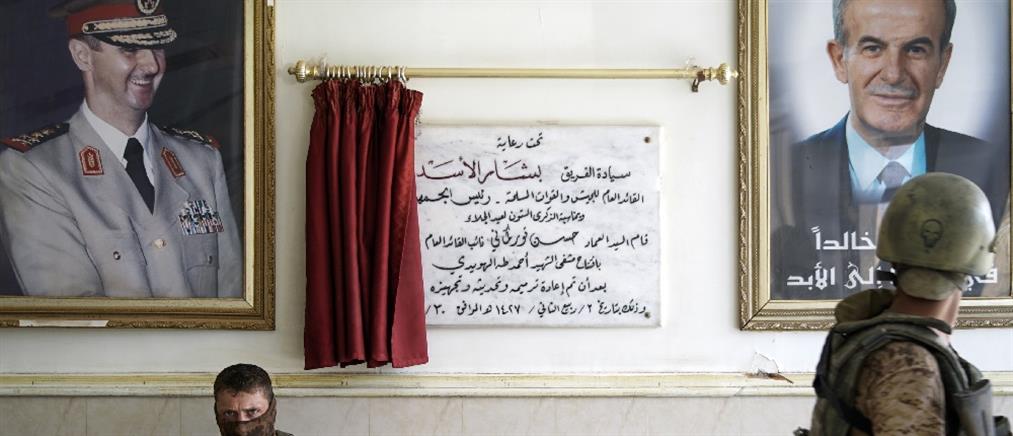 تحت رعاية
سيادة الفريق بشار الأسد
القائد العام للجيش والقوات المسلحة - رئيس الجمه
وبمناسبة الذكرى الستون لعيد الجلاء
قام السيد العماد حسن توركماني نائب القائد العام
بافتتاح مشفى الشهيد أحمد طه الهويدي
بعد أن تم إعادة ترميمه وتحديثه وتجهيزه
وذلك بتاريخ ٢/ ربيع الثاني/ ١٤٢٧ هـ الموافق ٣٠/
خالداً
الأبد